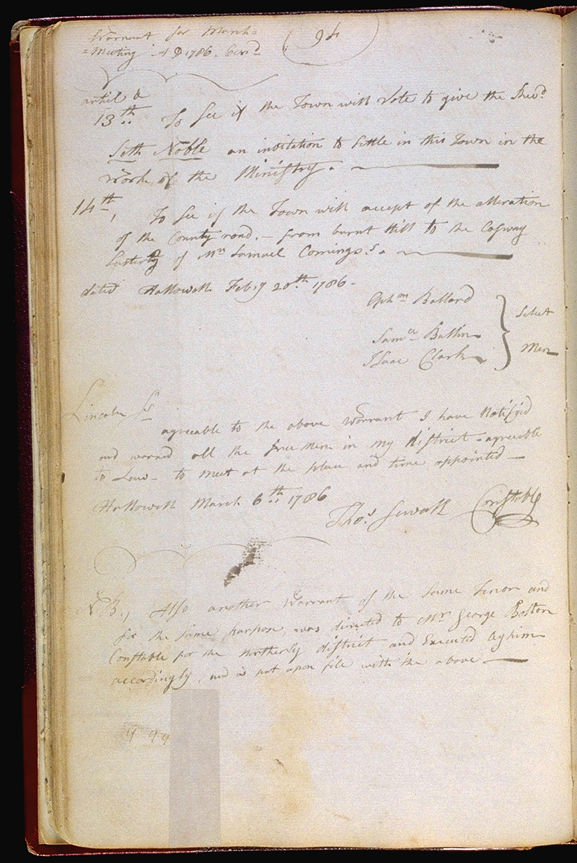 Warrant for March
Meeting AD 1786. Con.d
94
articl e
13.th To See if the Town will Vote to give the Rev.d
Seth Noble an invitation to Settle in this Town in the
work of the Ministry.
14.th, To See if the Town will accept of the alteration
of the County road, - from burnt Hill to the Casway
of Mr. Samuel Comings's.
dated Hallowell Feb.y 20.th 1786.
Eph.m Ballard
Sam.ll
Isaac Clark
Select
Men
Lincoln Ss
agreeable to the above Warrant I have Notifyed
and warned all the free Men in my district - agreeable
to Law - to meet at the place and time appointed
Hallowell March 6.th 1786
Tho.s Sewall Constable
N.B., Also another Warrant of the Same Tenor and
for the Same purpose, was directed to Mr. George
Constable for the Northerly district and Executed by him
accordingly, and is not upon file with the above